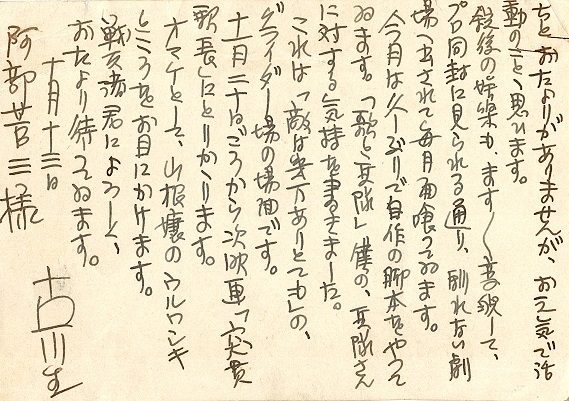 ちとおたよりがありませんが、お元気で活
動のことゝ思ひます。
銃後の娯楽も、ます〱して、
プロ同封に見られる通り、馴れない劇
場へ出されて毎月面喰つてゐます。
今月は久しぶりで自作の脚本をやつて
ゐます。「歌と兵隊」僕の、兵隊さん
に対する気持を書きました。
これは「敵は幾万ありとても」の、
グライダー場の場面です。
十一月二十日ごろから次映画「突貫
駅長」にとりかゝります。
オマケとして、山根嬢のウルワシキ
ところをお目にかけます。
戦友諸君によろしく、
おたより待つてゐます。
十月十三日
古川生
阿部三様